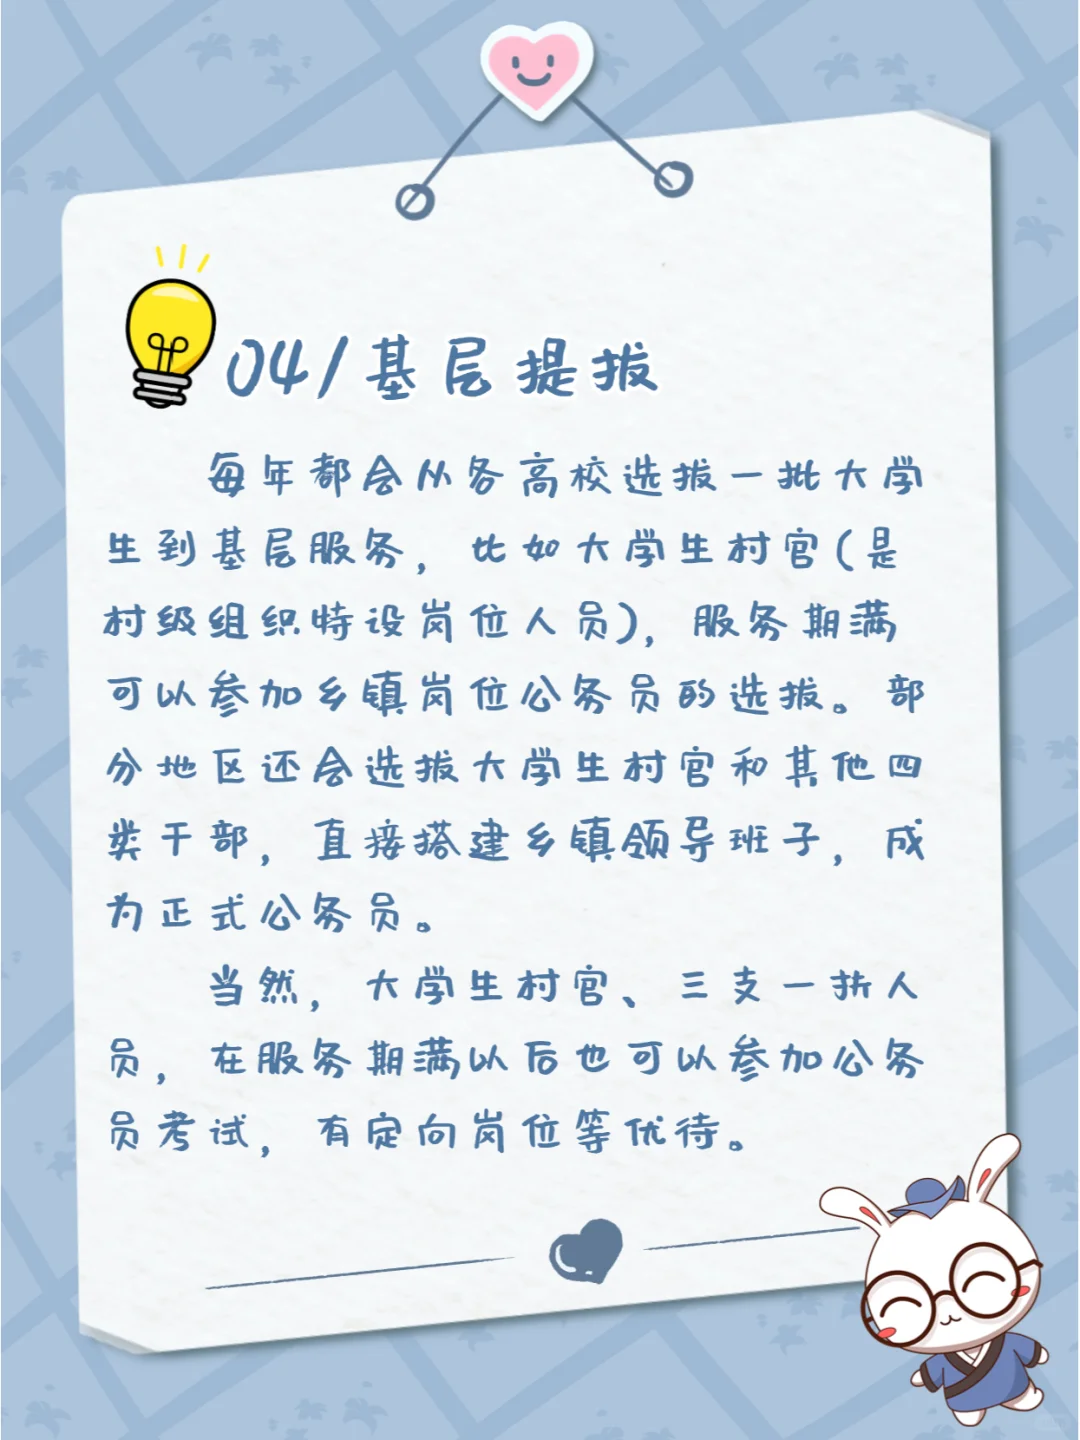 04/基层提拔
每年都会从各高校选拔一批大学
生到基层服务，比如大学生村官(是
村级组织特设岗位人员)，服务期满
可以参加乡镇岗位公务员的选拔。部
分地区还会选拔大学生村官和其他四
类干部，直接搭建乡镇领导班子，成
为正式公务员。
当然，大学生村官、三支一折人
员，在服务期满以后也可以参加公务
员考试，有定向岗位等优待。